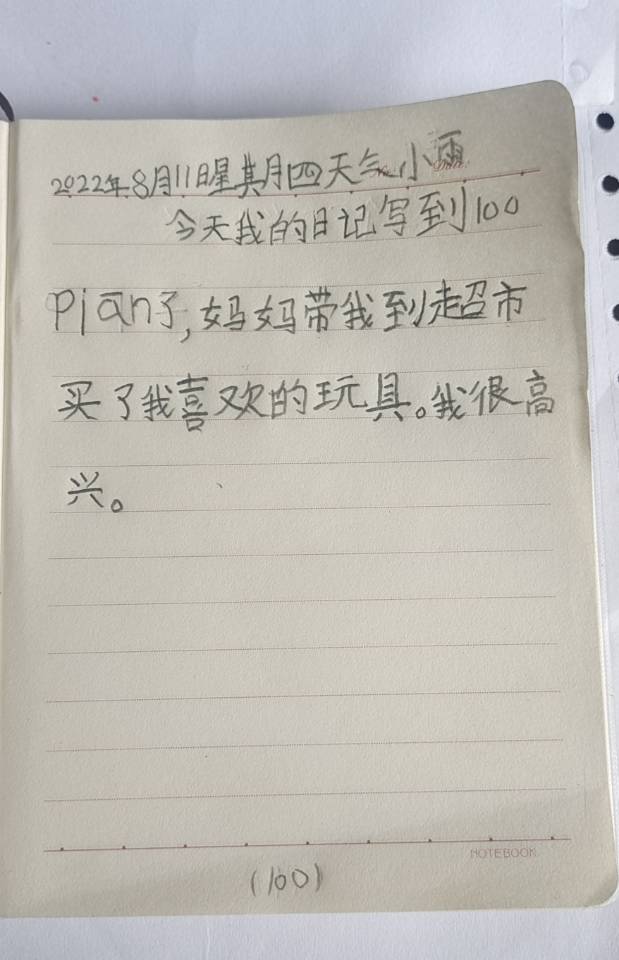 2022年8月11日星其月四天气小雨
今天我的日记写到100
piān了,妈妈带我到超市
买了我喜欢的玩具。我很高
兴。
NOTEBOOK
(100)